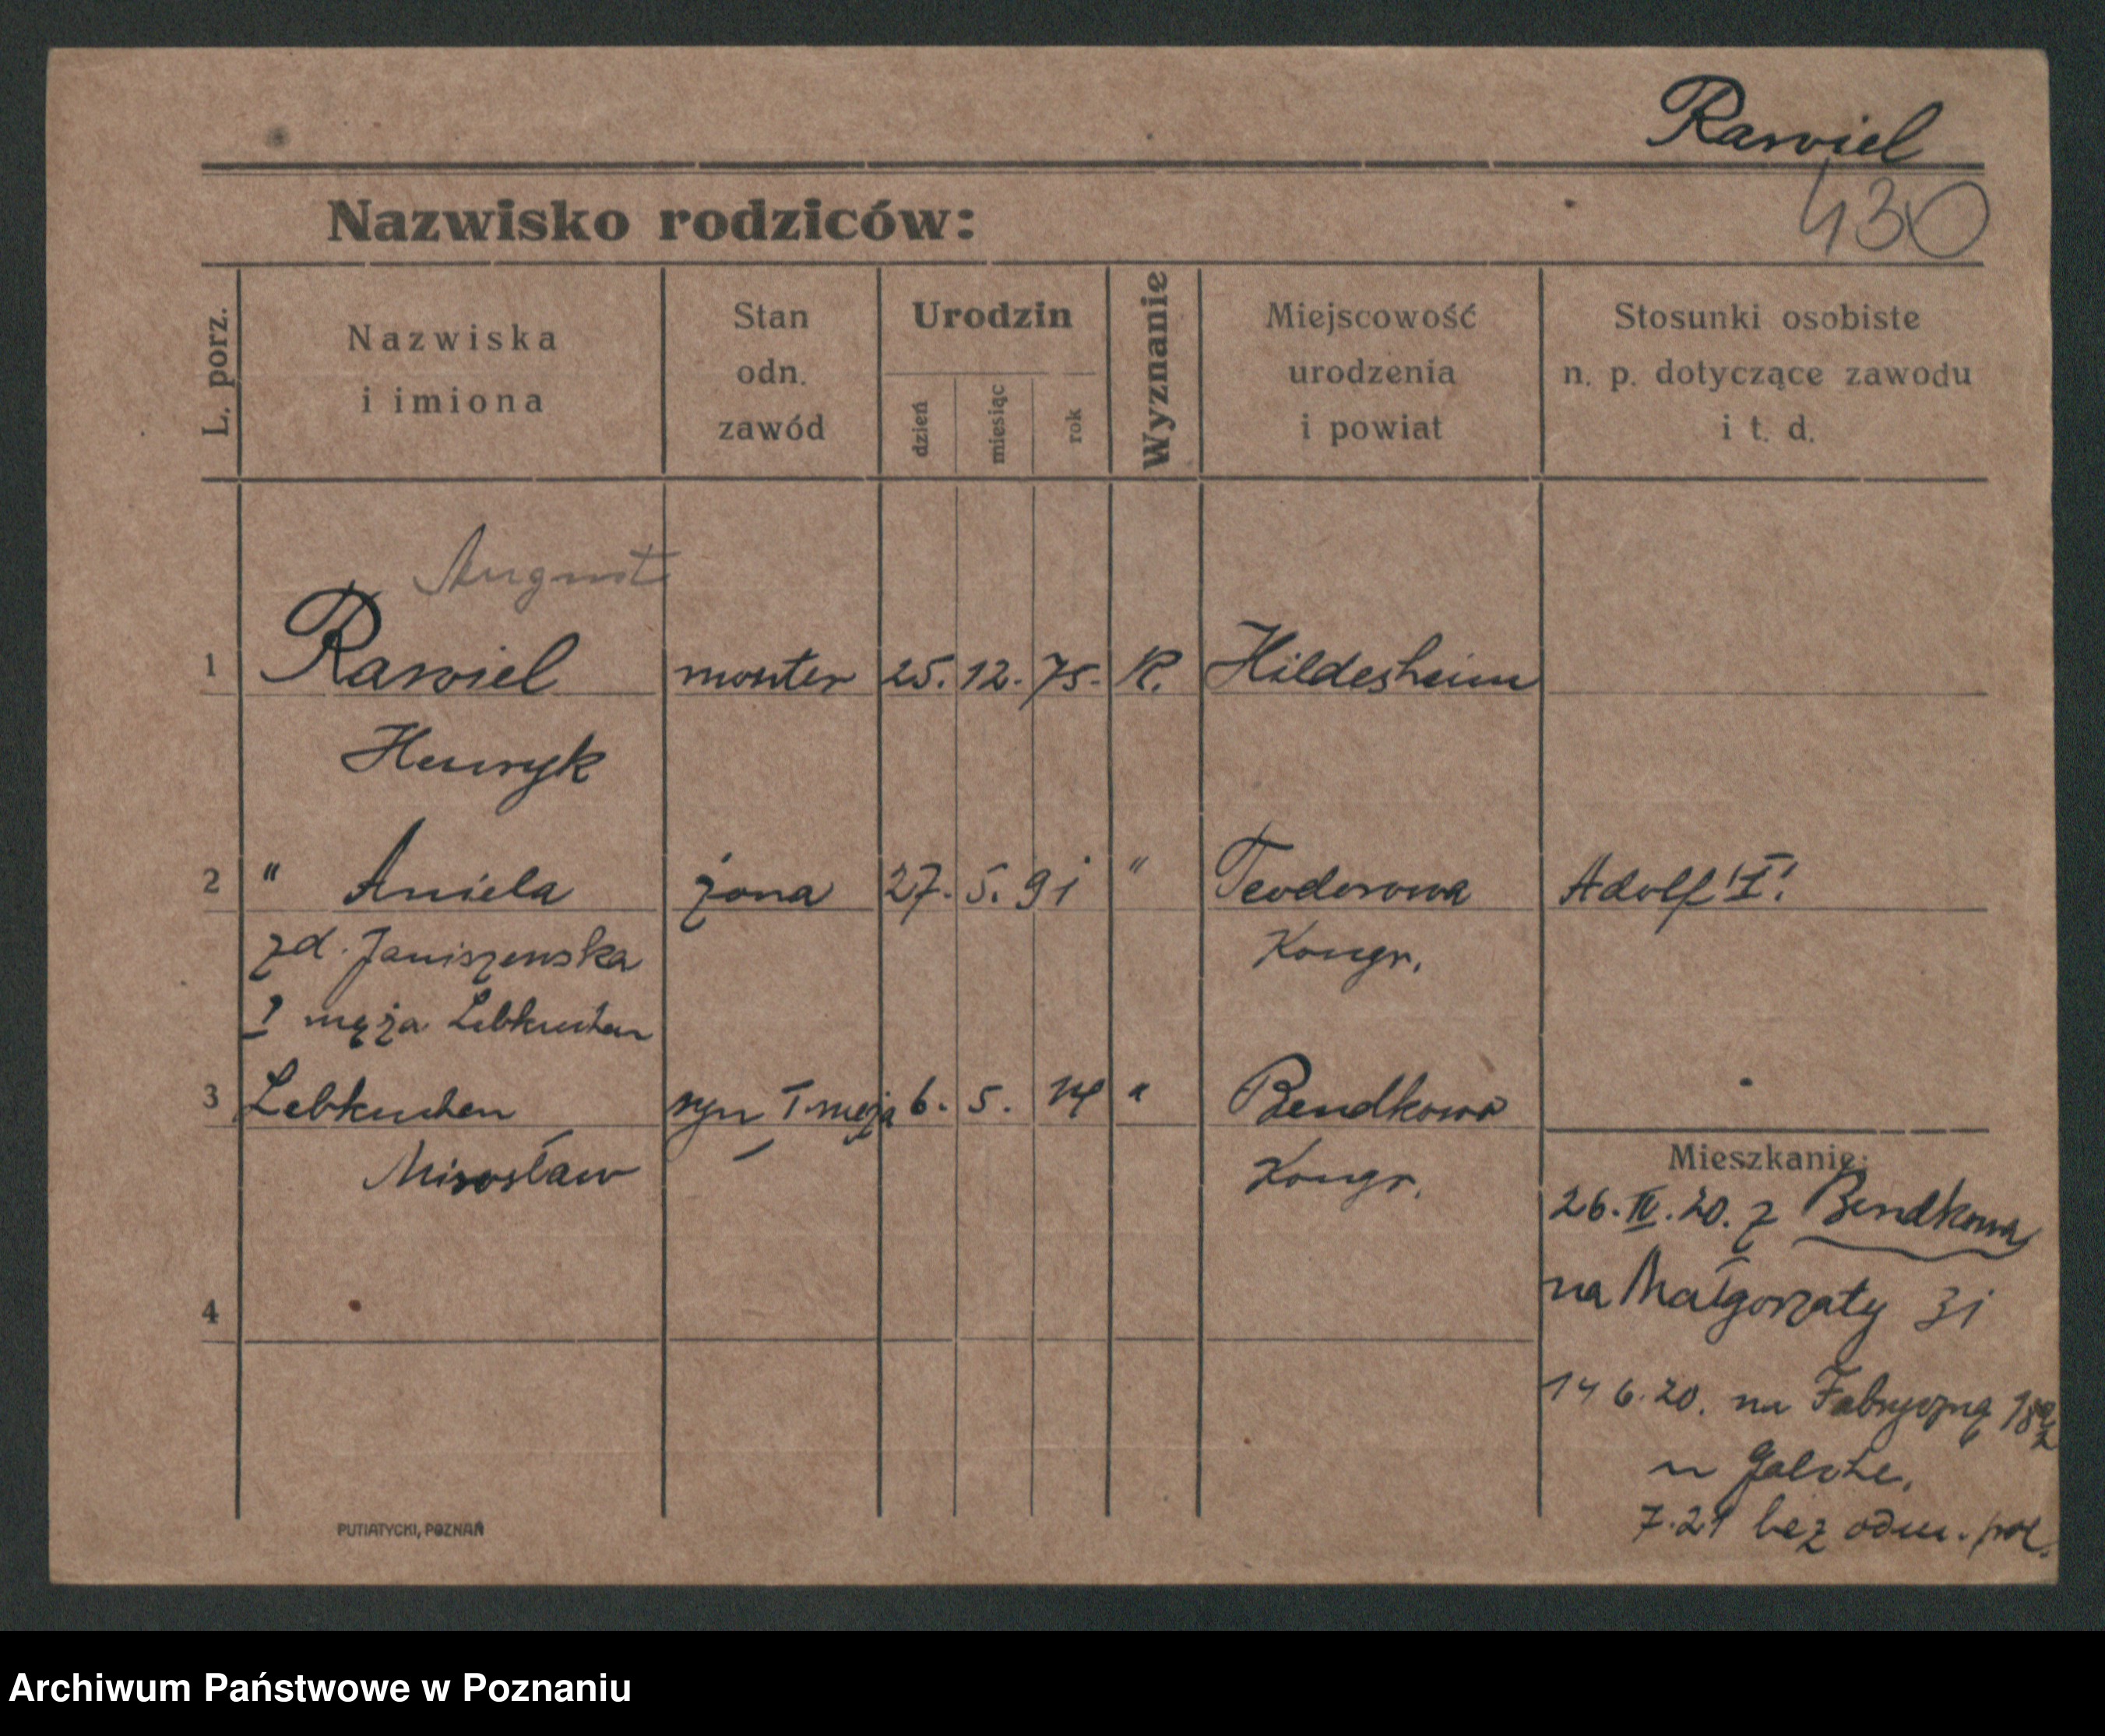 Rawiel
430
Nazwisko rodziców:
L. porz.
Nazwiska
i imiona
Stan
odn.
zawód
Urodzin
dzień
miesiąc
rok
Wyznanie
Miejscowość
urodzenia
i powiat
Stosunki osobiste
n. p. dotyczące zawodu
i t. d.
August
1 Rawiel monter 25. 12. 75. K. Hildesheim
Henryk
2 " Aniela żona 27. 5. 91 " Teodorowa Adolf "I"
zd. Janiszewska Kongr.
I męża Lebkuchen
3 Lebkuchen syn I. męża 6. 5. 14 " Bendkowo
Mirosław Kongr.
Mieszkanie:
26. IV. 20. z Bendkowa
na Małgorzaty 31
4
14 6. 20. na Fabryczną
u
7. 21 bez odm. pol.
PUTIATYCKI, POZNAŃ
Archiwum Państwowe w Poznaniu